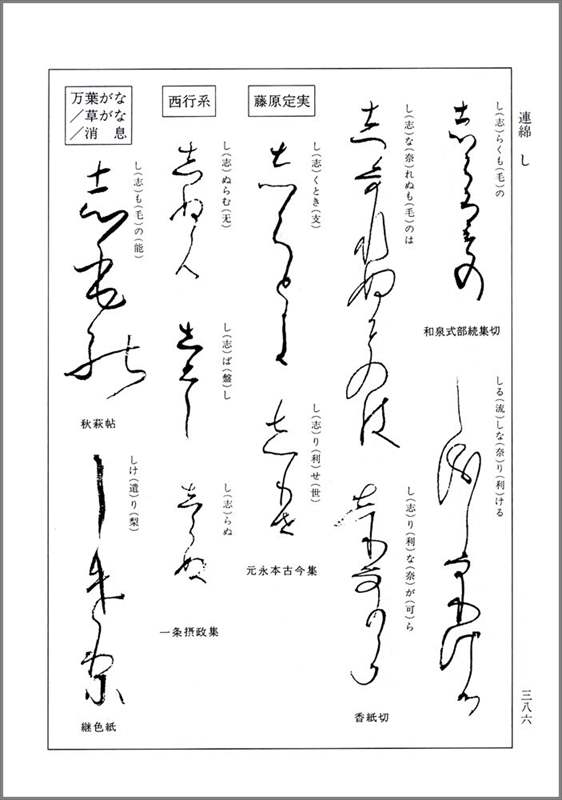 連綿 し
し(志)らくも(毛)の
和泉式部続集切
しる(流)しな(奈)り(利)ける
し(志)な(奈)れぬも(毛)のは
し(志)り(利)な(奈)が(可)ら
香紙切
藤原定実
し(志)くとき(支)
し(志)り(利)せ(世)
元永本古今集
西行系
し(志)ぬらむ(无)
し(志)ば(盤)し
し(志)らぬ
一条摂政集
万葉がな
／草がな
／消息
し(志)も(毛)の(能)
秋萩帖
しけ(遣)り(梨)
継色紙
三八六